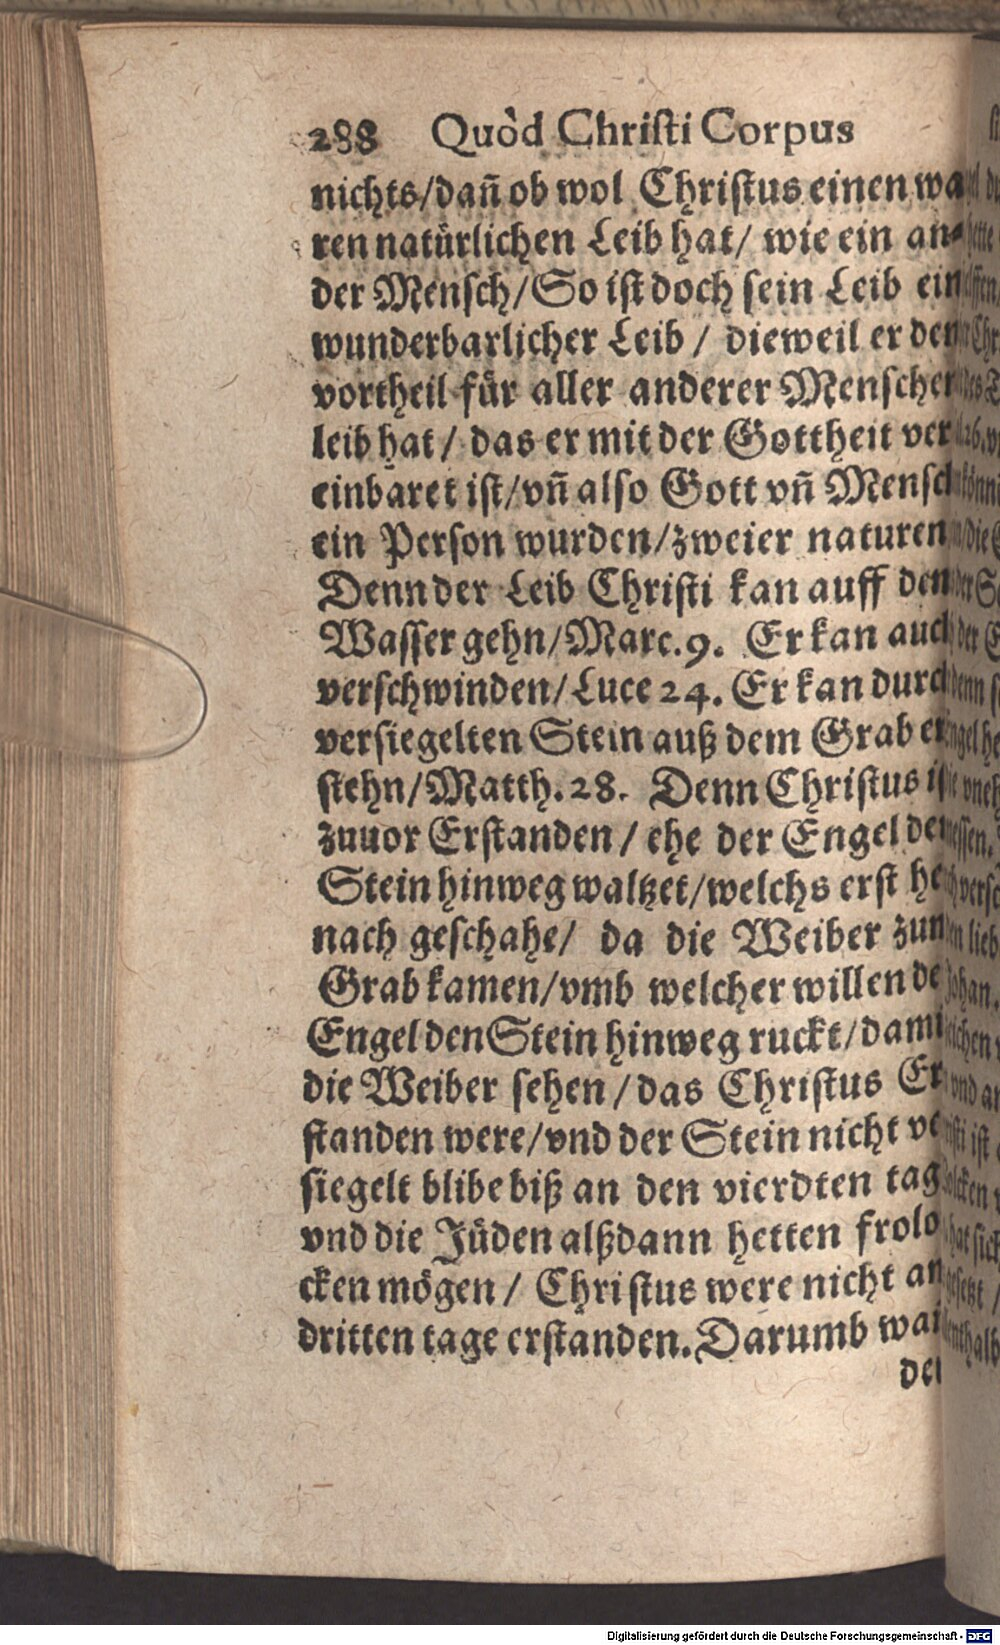 288 Quòd Christi Corpus
nichts/dañ ob wol Christus einen wa
ren natürlichen Leib hat/ wie ein an-
der Mensch/So ist doch sein Leib ein
wunderbarlicher Leib / dieweil er den
vortheil für aller anderer Menschen
leib hat/ das er mit der Gottheit ver
einbaret ist/vñ also Gott vñ Mensch
ein Person wurden/zweier naturen
Denn der Leib Christi kan auff den
Wasser gehn/Marc.9. Er kan auch
verschwinden/Luce 24. Er kan durch
versiegelten Stein auß dem Grab er
stehn/Matth.28. Denn Christus is
zuuor Erstanden / ehe der Engel den
Stein hinweg waltzet/welchs erst he
nach geschahe/ da die Weiber zum
Grab kamen/vmb welcher willen de
Engel den Stein hinweg ruckt/dami
die Weiber sehen/das Christus Er
standen were/vnd der Stein nicht ve
siegelt blibe biß an den vierdten tag
vnd die Jüden alßdann hetten frolo
cken mögen / Christus were nicht an
dritten tage erstanden. Darumb war
der
Digitalisierung gefördert durch die Deutsche Forschungsgemeinschaft - DFG